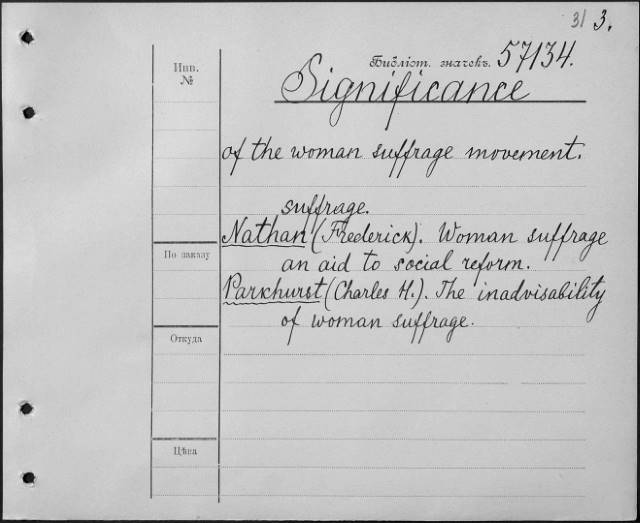 3/ 3.
Библіот. значекъ. 57134.
Инв.
№
Significance
of the woman suffrage movement.
suffrage.
Nathan (Frederick). Woman suffrage
an aid to social reform.
Parkhurst (Charles H.). The inadvisability
of woman suffrage.
По заказу
Откуда
Цѣна